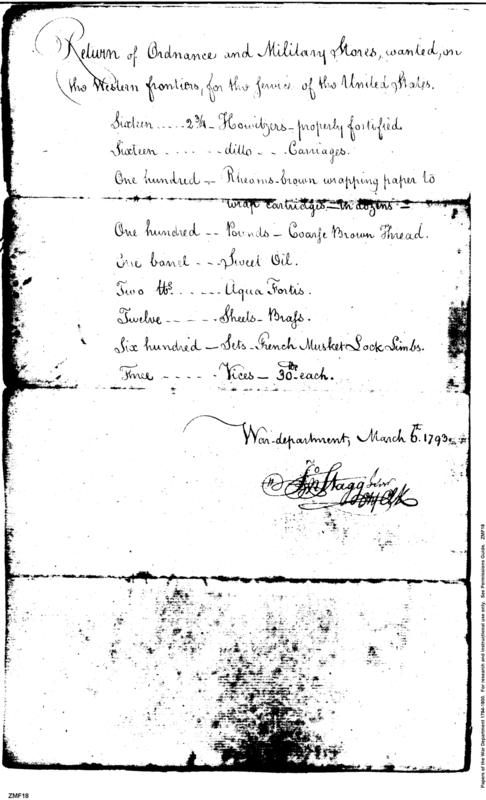 Return of Ordnance and Military Stores, wanted, on
the Western frontiers, for the service of the United States.
Sixteen ..... 2¾ - Howitzers - properly fortified.
Sixteen - - - - - ditto - - - Carriages.
One hundred - Rheams - brown wrapping paper to
wrap cartridges, - in dozens -
One hundred - - Pounds - Coarse Brown Thread.
One barrel - - - Sweet Oil.
Two lbs. - - - - Aqua Fortis.
Twelve - - - - - Sheets - Brass.
Six hundred - Sets - French Musket Lock Limbs.
Three - - - - - Vices - 30 lbs - each.
War-department, March 6th. 1793.
Jno Stagg Junr
Clk
Papers of the War Department 1784-1800. For research and instructional use only. See Permissions Guide. ZMF18
ZMF18